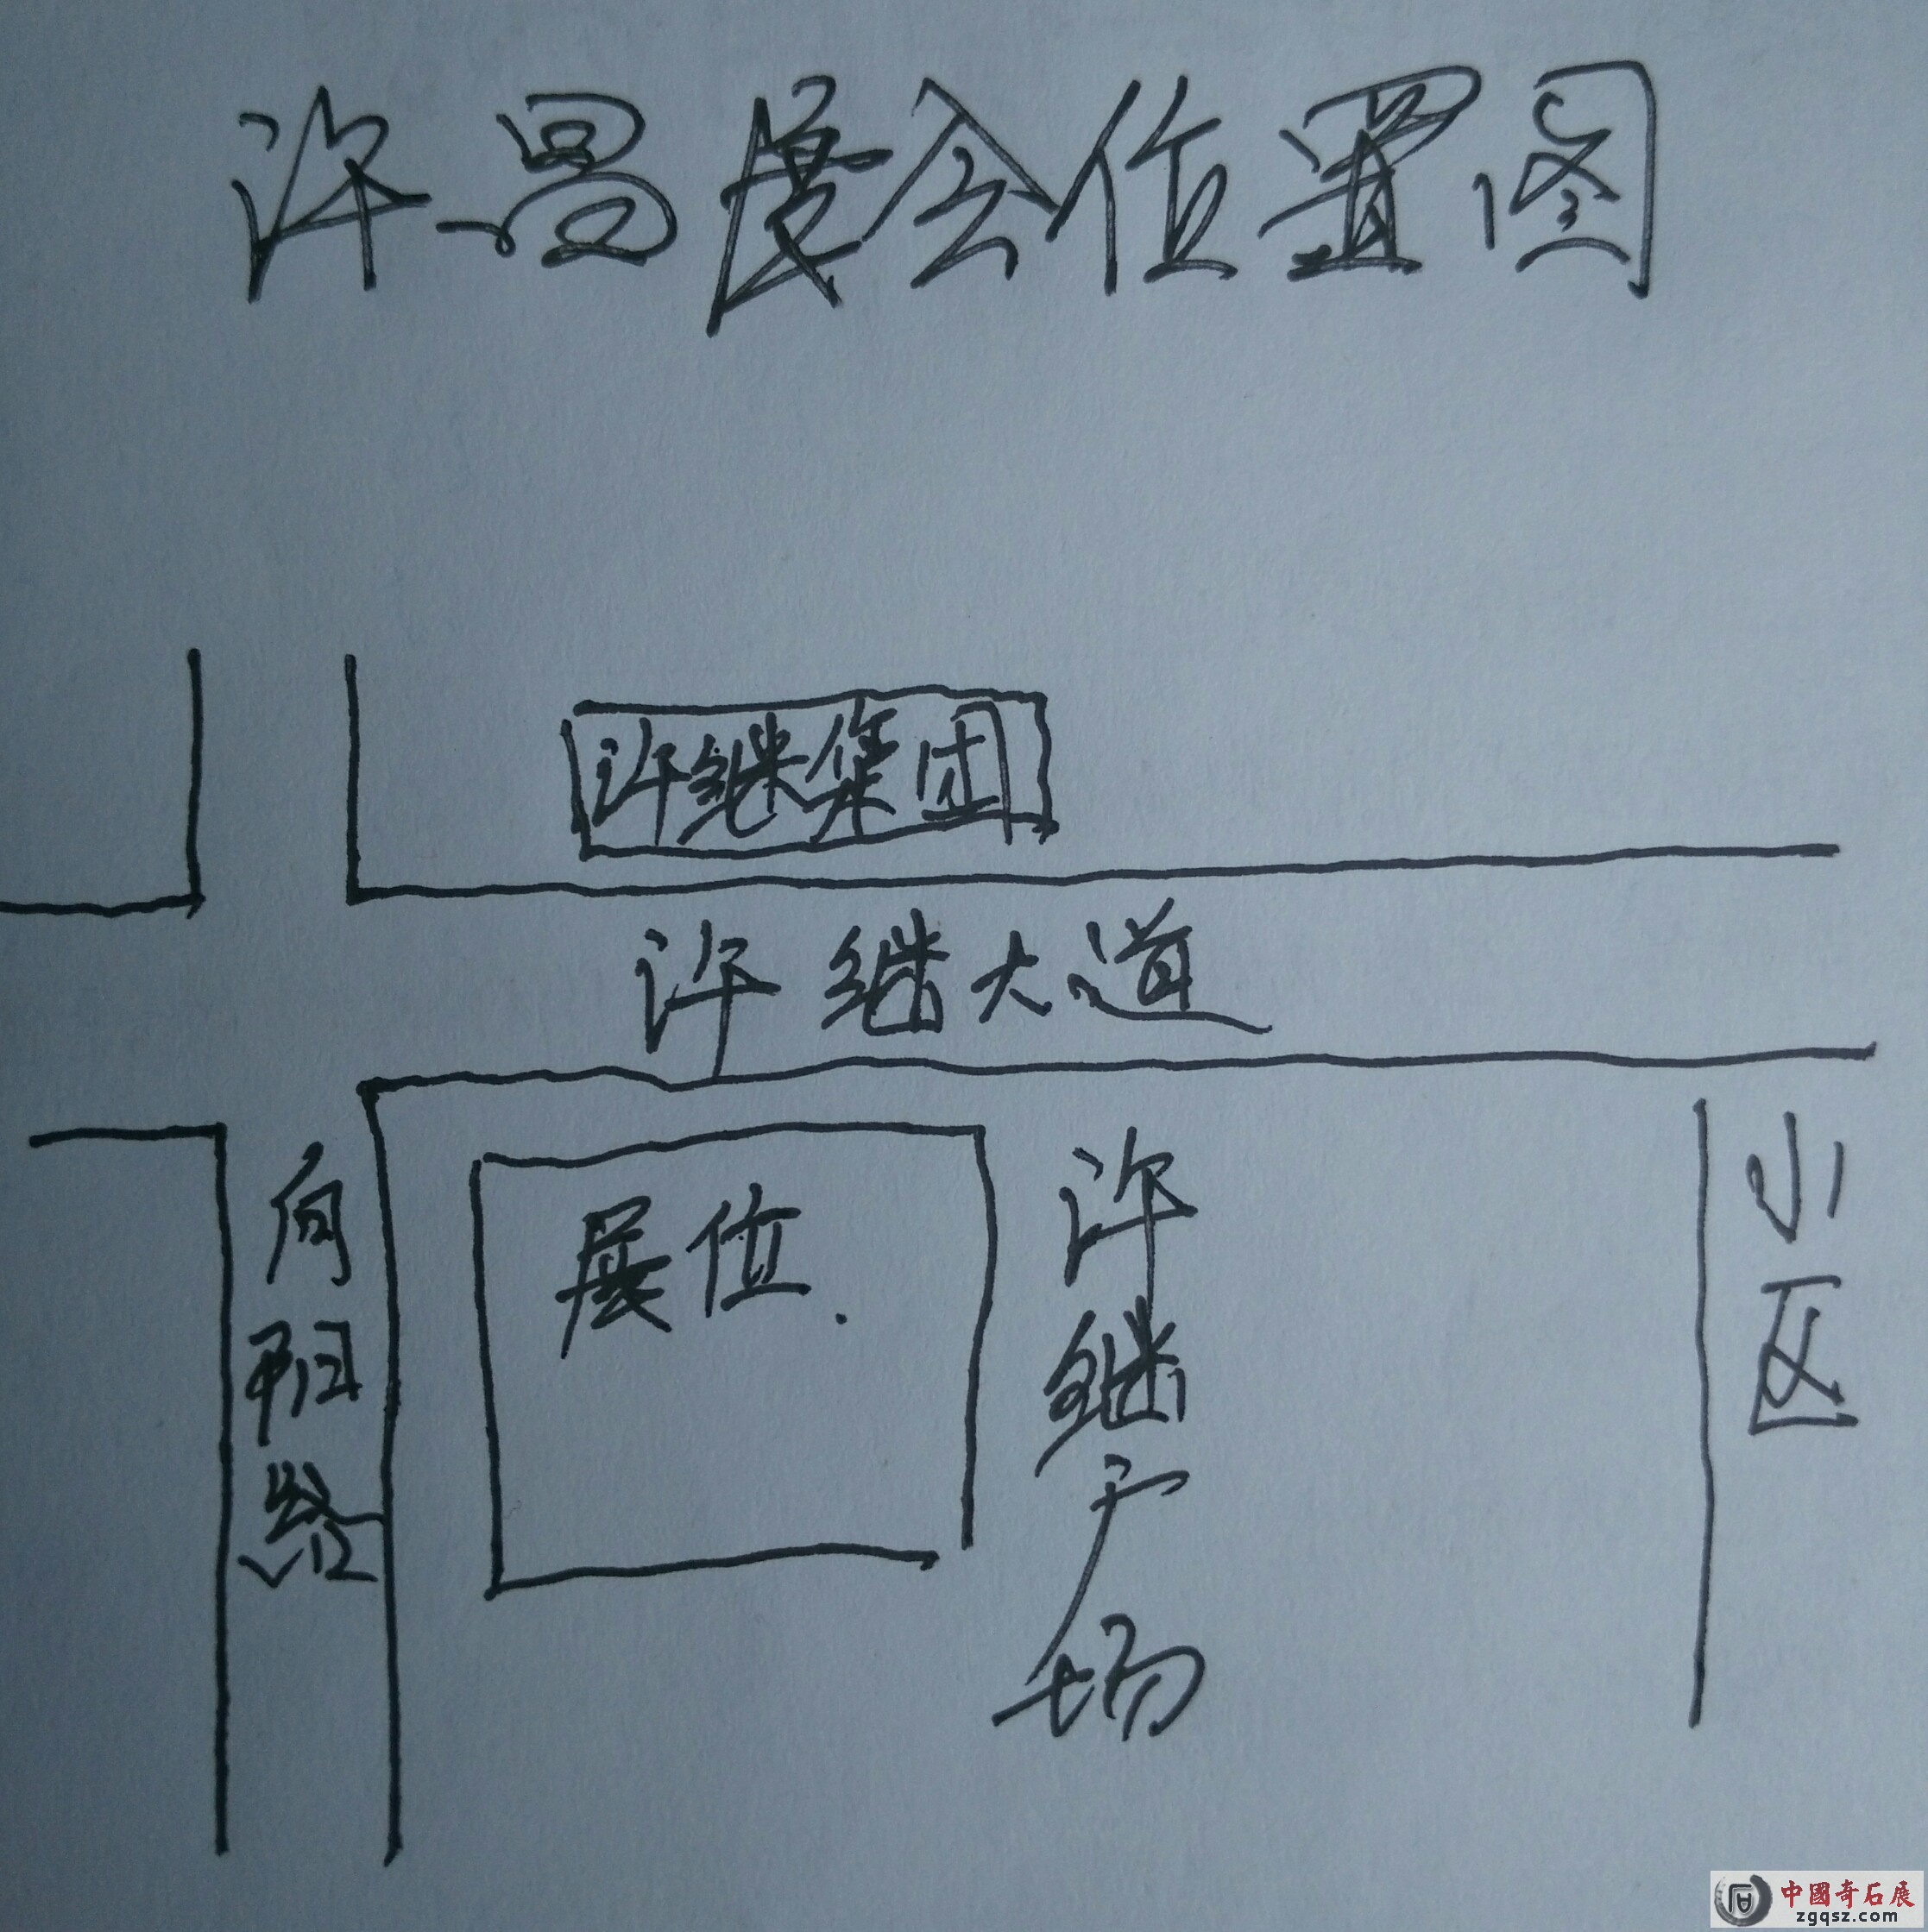 许昌展会位置图
许继集团
许继大道
向阳路
展位.
许继广场
小区
中國奇石展
zgqsz.com